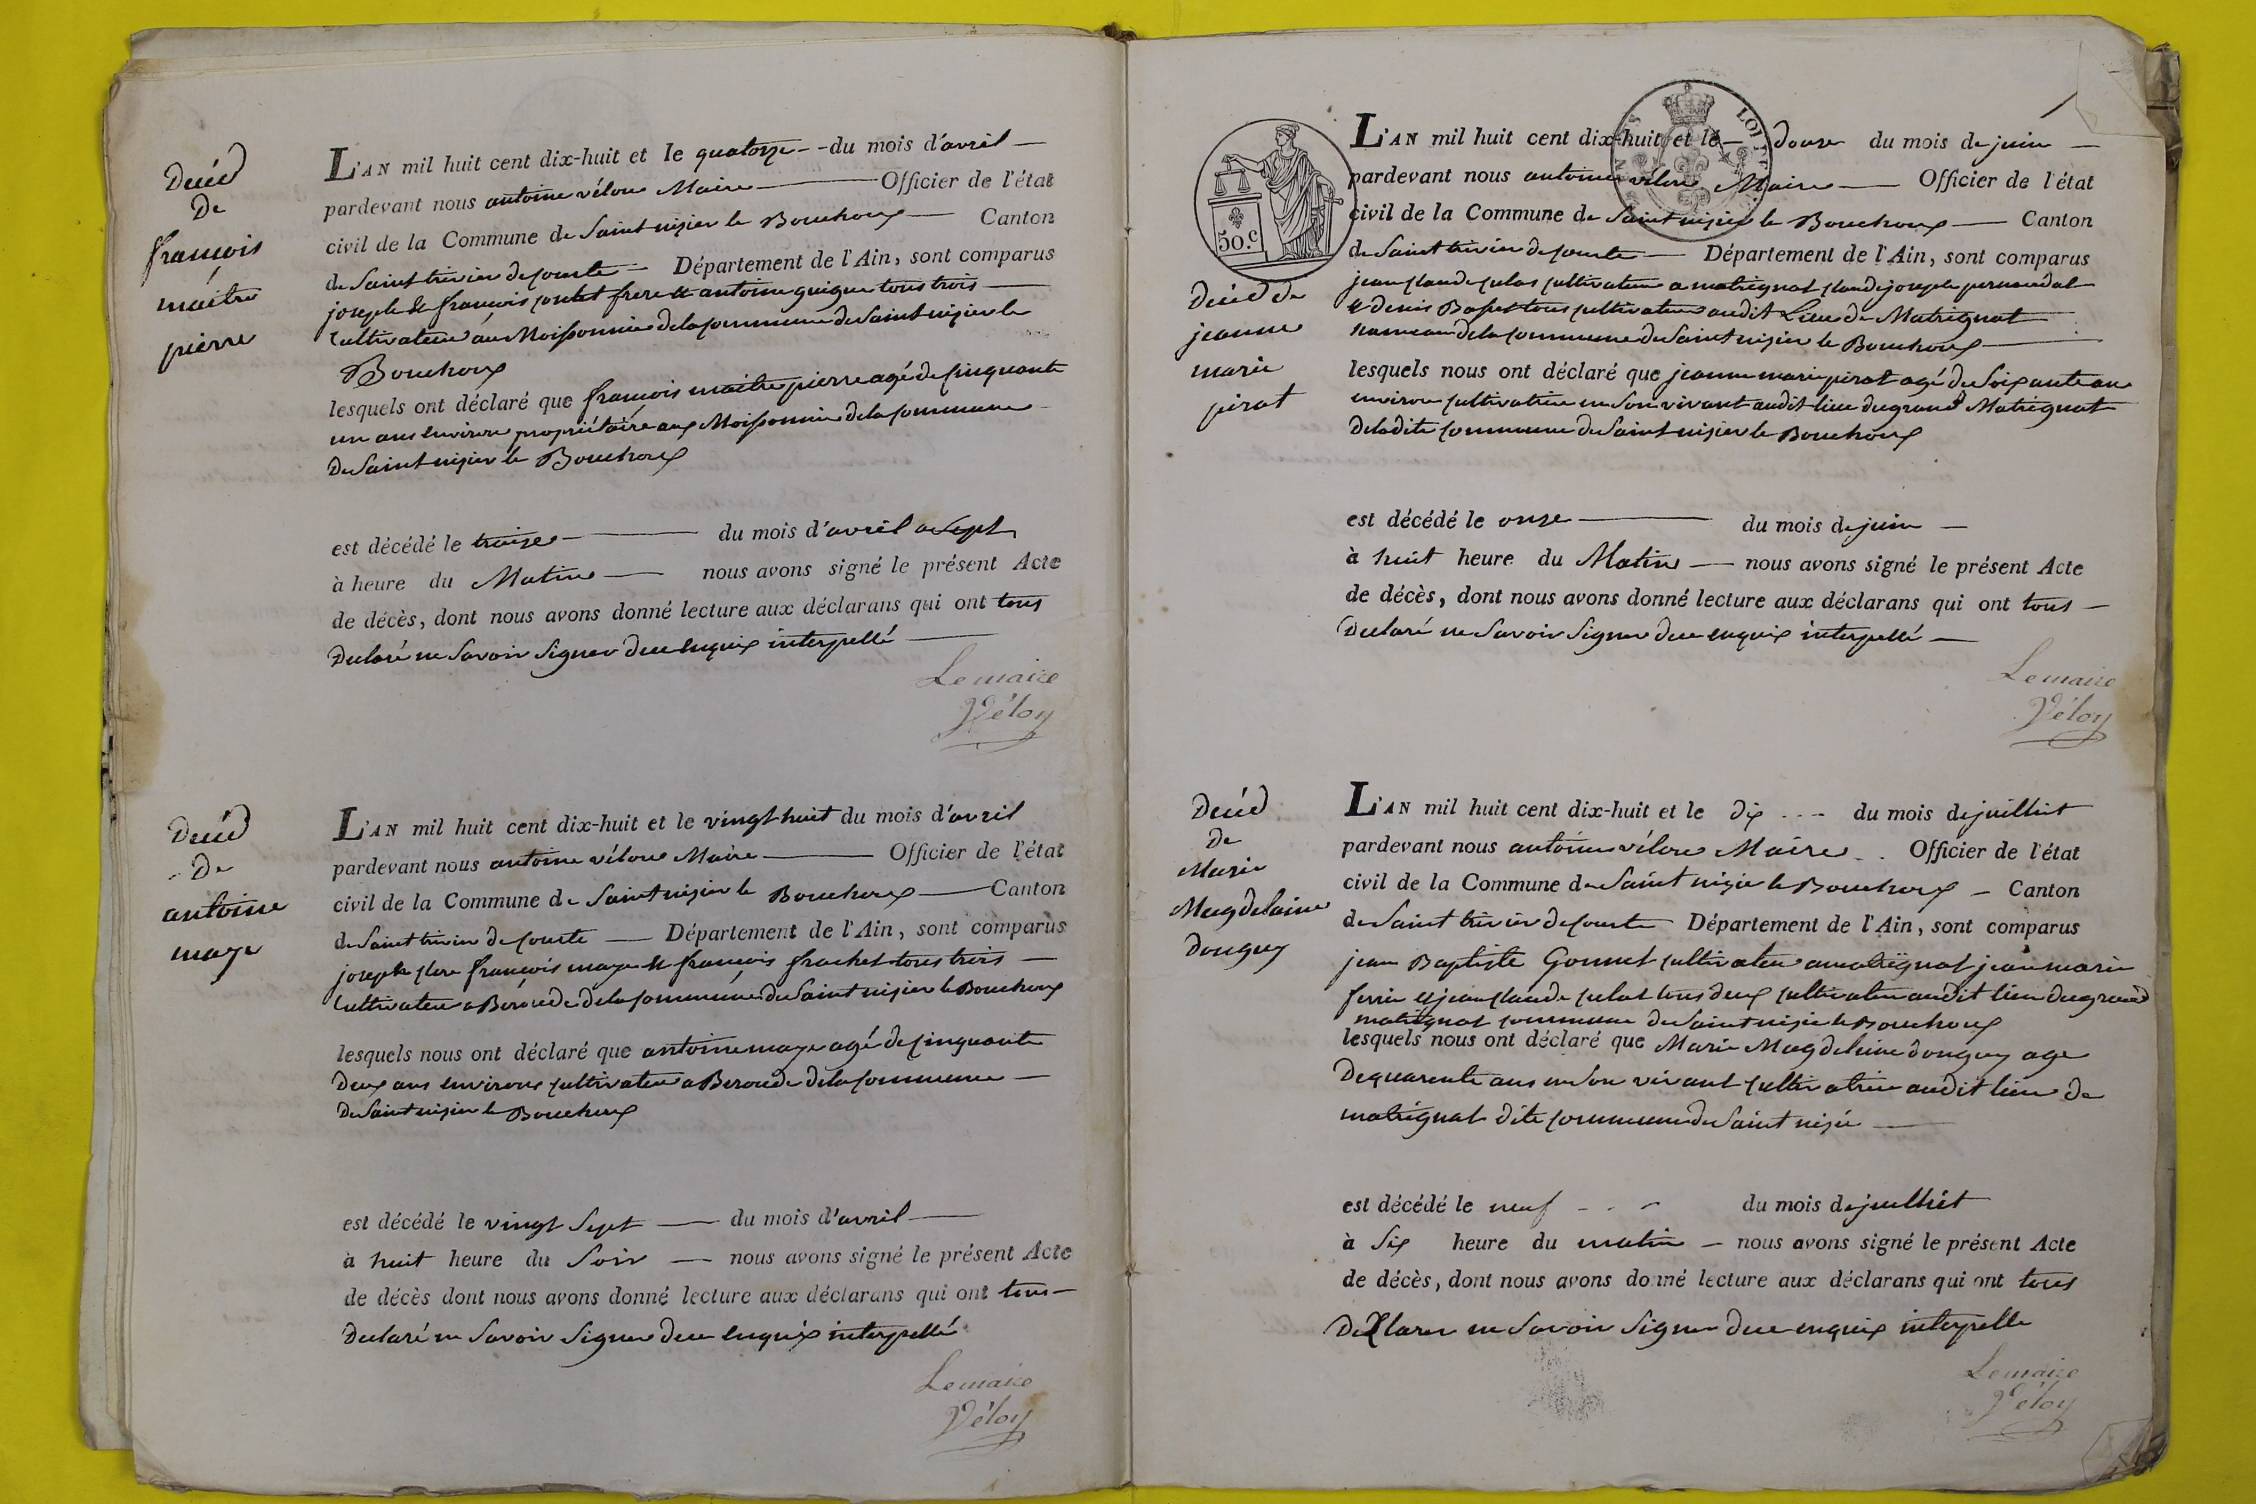 Décéd
De
françois
maitre
pierre
L'AN mil huit cent dix-huit et le quatorze - - du mois d'avril —
pardevant nous antoine véloue Maire — Officier de l'état
civil de la Commune de Saint nizier le Bouchoux — Canton
de Saint trivier de courte — Département de l'Ain, sont comparus
joseph & françois poulet frere & antoine guigue tous trois —
Cultivateur aux Moissonnier de la commune de Saint nizier le
Bouchoux
lesquels ont déclaré que françois maitre pierre agé de cinquante
un ans environ propriétaire aux Moissonnier de la commune
de Saint nizier le Bouchoux
est décédé le treize — du mois d'avril a sept
à heure du Matin — nous avons signé le présent Acte
de décès, dont nous avons donné lecture aux déclarans qui ont tous
Déclaré ne Savoir Signer de ce enquis interpellé —
Lemaire
Véloy
Décéd
De
antoine
maye
L'AN mil huit cent dix-huit et le vingt huit du mois d'avril
pardevant nous antoine véloue Maire — Officier de l'état
civil de la Commune de Saint nizier le Bouchoux — Canton
de Saint trivier de courte — Département de l'Ain, sont comparus
joseph clere françois maye & françois frachet tous trois —
Cultivateur a Beroude de la commune de Saint nizier le Bouchoux
lesquels nous ont déclaré que antoine maye agé de cinquante
Deux ans environ cultivateur a Beroude de la commune —
De Saint nizier le Bouchoux
est décédé le vingt Sept — du mois d'avril —
à huit heure du Soir — nous avons signé le présent Acte
de décès dont nous avons donné lecture aux déclarans qui ont tous —
Déclaré ne Savoir Signer de ce enquix interpellé
Lemaire
Véloy
50.c
LOI
Décéd de
jeanne
marie
pirat
L'AN mil huit cent dix-huit et le — douze du mois de juin —
pardevant nous antoine véloue Maire — Officier de l'état
civil de la Commune de Saint nizier le Bouchoux — Canton
de Saint trivier de courte — Département de l'Ain, sont comparus
jean claude culas cultivateur a matrignat claude joseph
& denis Basset tous cultivateur au dit Lieu de Matrignat
hameau de la commune de Saint nizier le Bouchoux —
lesquels nous ont déclaré que jeanne marie pirat agé de Soixante an
environ cultivatrice en Son vivant au dit lieu du grand Matrignat
De la dite commune de Saint nizier le Bouchoux
est décédé le onze — du mois de juin —
à huit heure du Matin — nous avons signé le présent Acte
de décès, dont nous avons donné lecture aux déclarans qui ont tous —
Déclaré ne Savoir Signer de ce enquix interpellé —
Lemaire
Véloy
Décéd
De
Marie
Magdelaine
Donguy
L'AN mil huit cent dix-huit et le dix - - - du mois de juilliet
pardevant nous antoine véloue Maire - . Officier de l'état
civil de la Commune de Saint nizier le Bouchoux — Canton
de Saint trivier de courte — Département de l'Ain, sont comparus
jean Baptiste Gonnet cultivateur a matrignat jean marie
ferrier & jean claude culat tous deux cultivateur au dit lieu du grand
matrignat commune de Saint nizier le Bouchoux
lesquels nous ont déclaré que Marie Magdelaine donguy age
De quarente ans en Son vivant cultivatrice au dit lieu de
matrignat dite commune de Saint nizié —
est décédé le neuf - - - du mois de juilliet
à Six heure du matin — nous avons signé le présent Acte
de décès, dont nous avons donné lecture aux déclarans qui ont tous
Déclarer ne Savoir Signer de ce enquix interpelle
Lemaire
Véloy